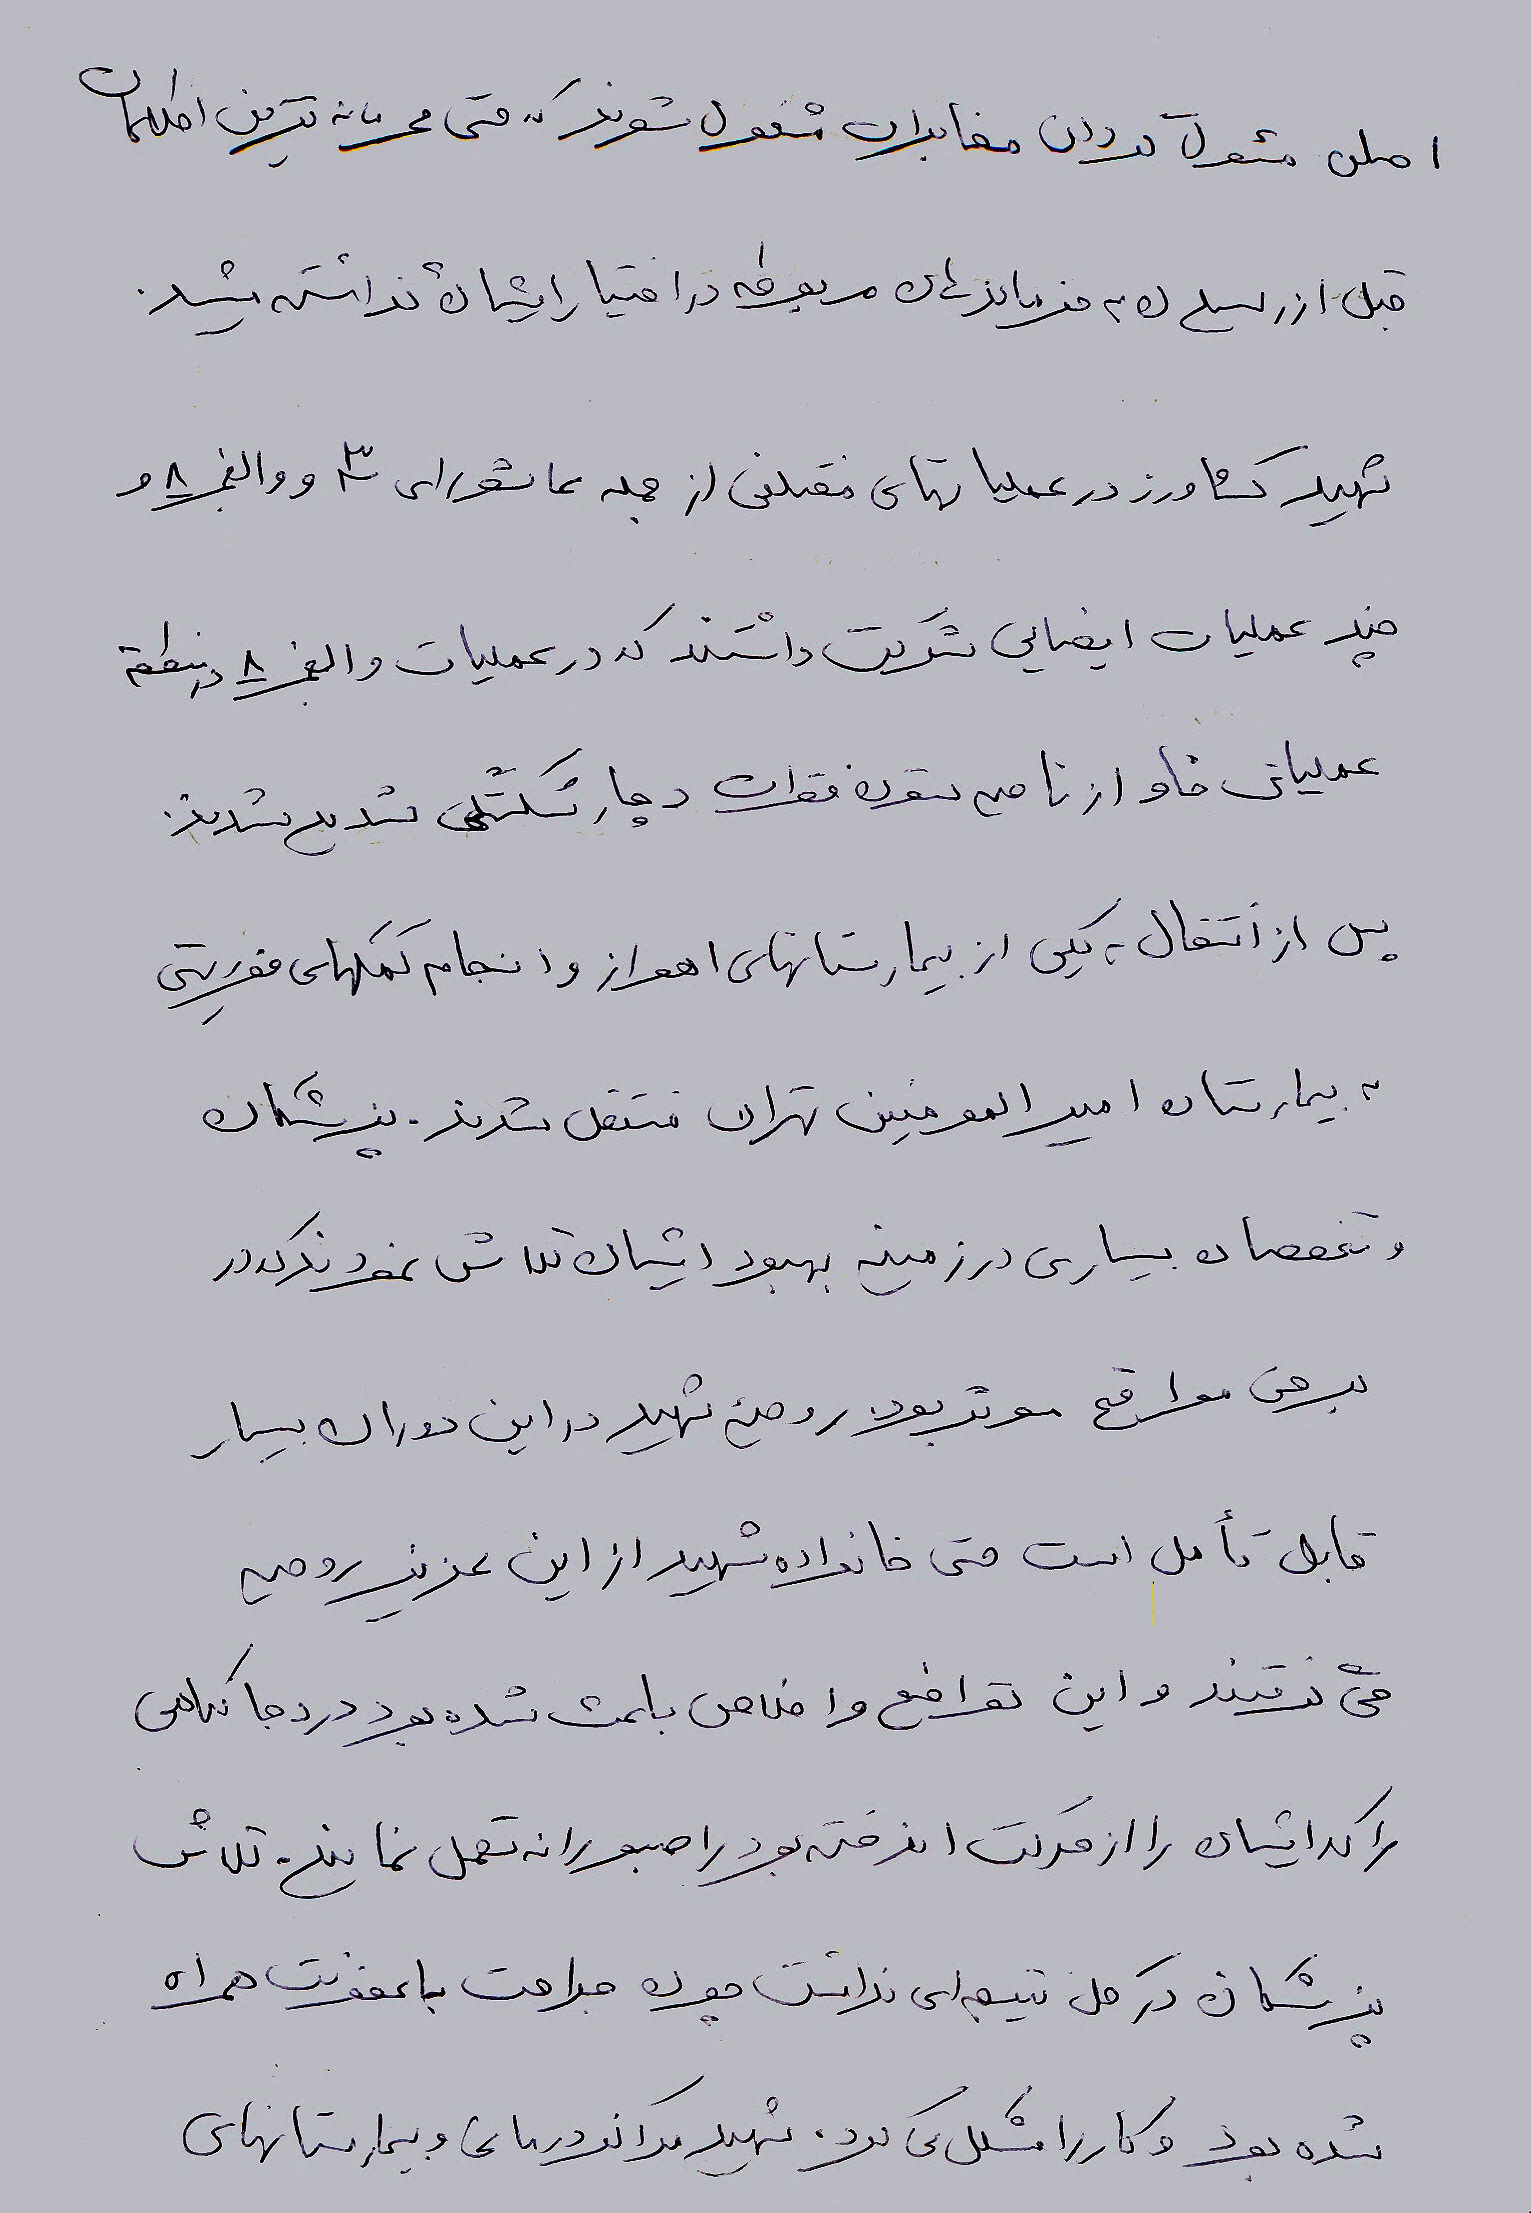 اصلی مسئول گردان مخابرات مشغول شوند که حتی محرمانه ترین اطلاعات
قبل از رسیدن به فرماندهان مربوطه در اختیار ایشان نداشته باشند.
شهید کشاورز در عملیاتهای مختلفی از جمله عاشورای ۳ و والفجر ۸ و
چند عملیات ایضایی شرکت داشتند که در عملیات والفجر ۸ در منطقه
عملیاتی فاو از ناحیه ستون فقرات دچار شکستگی شدید شدند.
پس از انتقال به یکی از بیمارستانهای اهواز و انجام کمکهای فوریتی
به بیمارستان امیرالمومنین تهران منتقل شدند. پزشکان
و متخصصان بسیاری در زمینه بهبود ایشان تلاش نمودند که در
برخی مواقع موثر بود. روحیه شهید در این دوران بسیار
قابل تأمل است حتی خانواده شهید از این عزیز روحیه
می گرفتند و این تواضع و اخلاص باعث شده بود درد جانکاهی
را که ایشان را از حرکت انداخته بود را صبورانه تحمل نمایند. تلاش
پزشکان در کل نتیجه ای نداشت چون جراحت با عفونت همراه
شده بود و کار را مشکل می کرد. شهید مراکز درمانی و بیمارستانهای